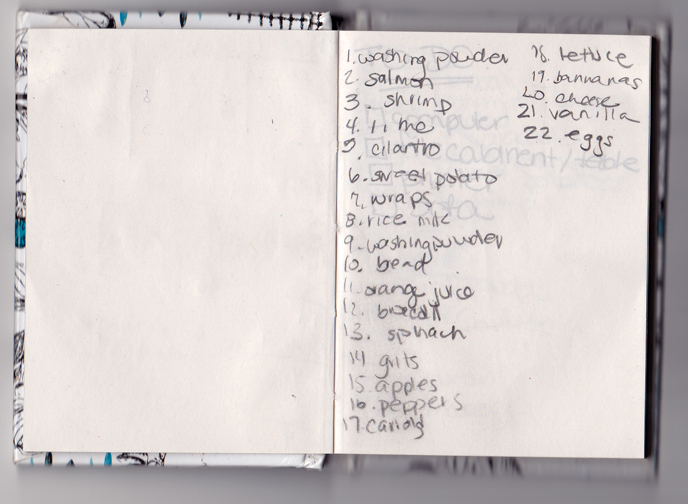 1. washing powder
2. salmon
3. shrimp
4. lime
5. cilantro
6. sweet potato
7. wraps
8. rice milk
9. washing powder
10. bead
11. orange juice
12.
13. spinach
14 grits
15. apples
16. peppers
17.
18. lettuce
19. bannanas
20. cheese
21. vanilla
22. eggs
computer